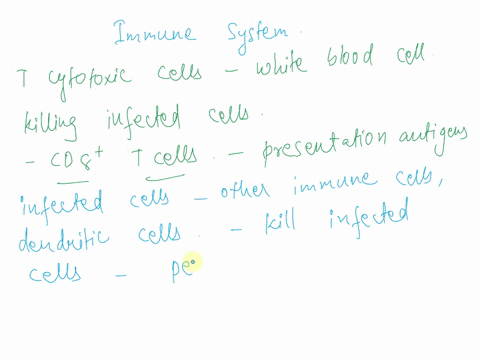 Immune System.
T cytotoxic cells - white blood cell.
killing infected cells.
- CD8+ T cells. - presentation antigens
infected cells - other immune cells,
dendritic cells. - kill infected
cells - pe